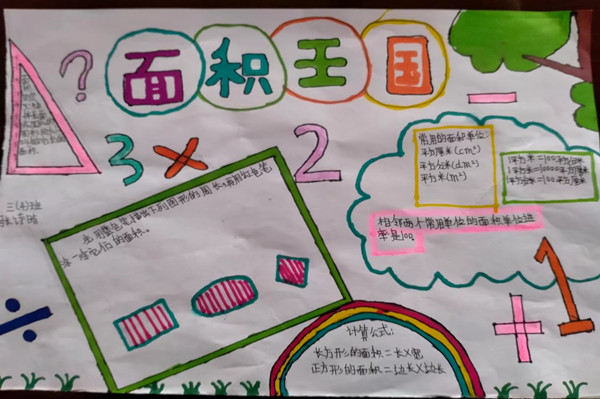 面积王国
?
3 × 2
常用的面积单位:
平方厘米(cm²)
平方分米(dm²)
平方米(m²)
1平方米=100平方分米
1平方米=10000平方厘米
1平方分米=100平方厘米
相邻两个常用单位的面积单位进
率是100。
三(4)班
出用蓝色笔描出下列图形的周长,请用红色笔
涂一涂它们的面积。
计算公式:
长方形的面积=长×宽
正方形的面积=边长×边长
÷
+
1